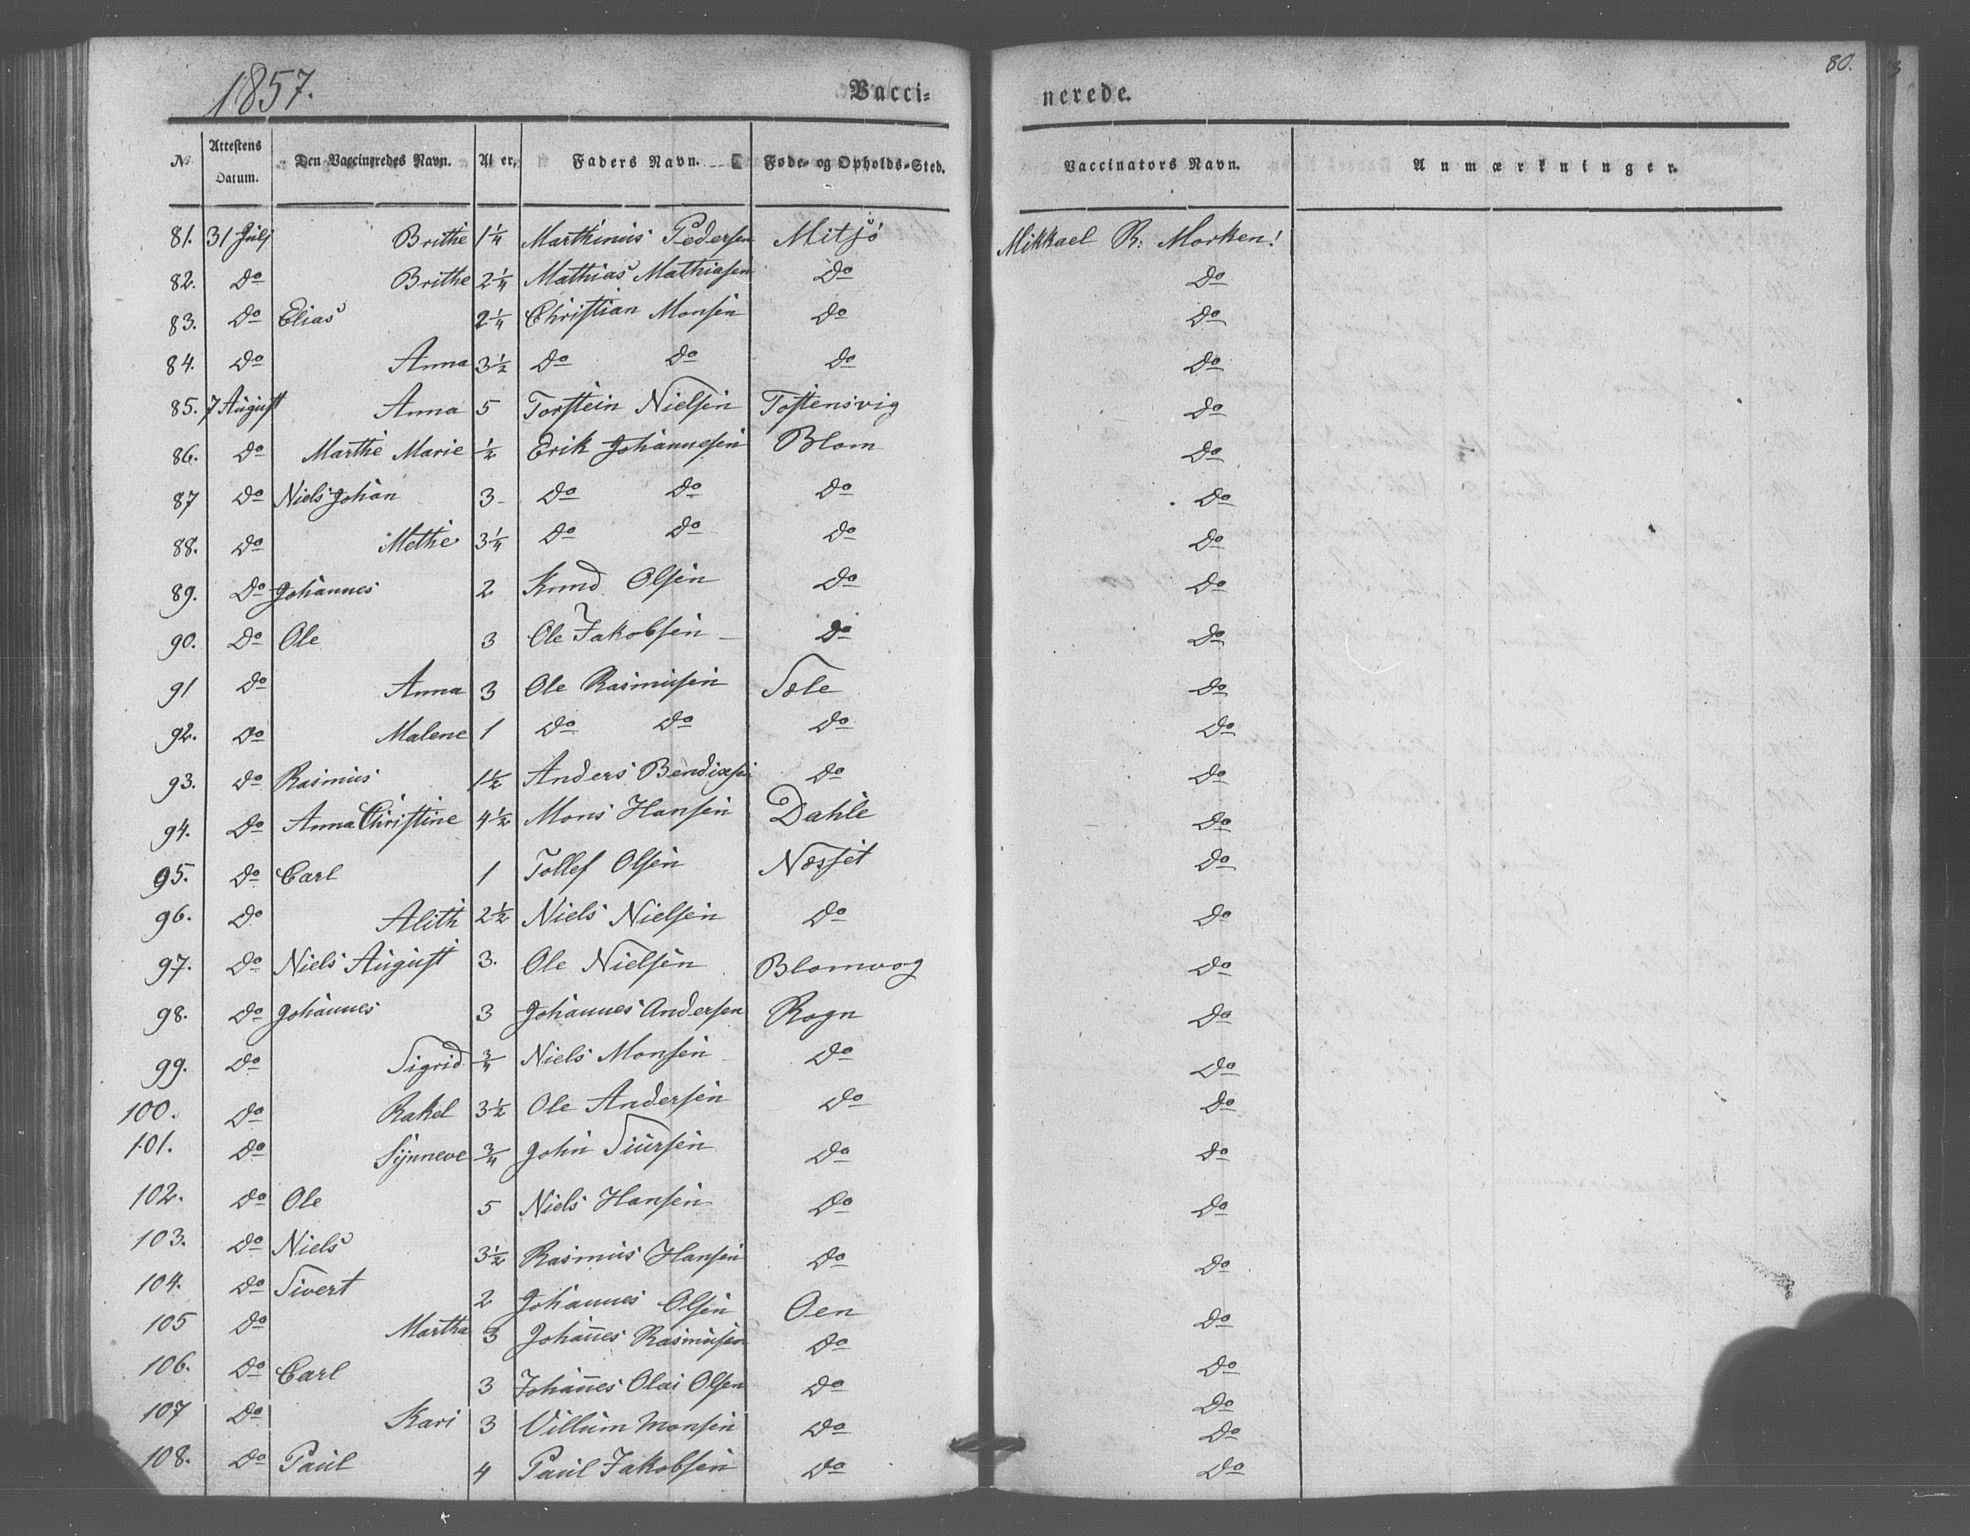 1857. Vacci= nerede. 80.
No. Attestens Datum. Den Vaccineredes Navn. Al er. Faders Navn. Føde- og Opholds-Sted. Vaccinators Navn. Anmærkninger.
81. 31 Juli Brithe 1¼ Marthinus Pedersen Mitsjø Mikkael R: Morken!
82. Do Brithe 2¼ Mathias Mathiasen Do Do
83. Do Elias 2¼ Christian Monsen Do Do
84. Do Anna 3½ Do Do Do Do
85. 7 August Anna 5 Torstein Nielsen Tostensvig Do
86. Do Marthe Marie ½ Erik Johannesen Blom Do
87 Do Niels Johan 3 Do Do Do Do
88. Do Methe 3¼ Do Do Do Do
89. Do Johannes 2 Knud Olsen Do Do
90. Do Ole 3 Ole Jakobsen Do Do
91 Do Anna 3 Ole Rasmusen Sæle Do
92. Do Malene 1 Do Do Do Do
93. Do Rasmus 1½ Anders Bendixsen Do Do
94. Do Anna Christine 4½ Mons Hansen Dahle Do
95. Do Carl 1 Tollef Olsen Næsset Do
96. Do Alith 2½ Niels Nielsen Do Do
97. Do Niels August 3. Ole Nielsen Blomvog Do
98. Do Johannes 3 Johannes Andersen Rogn Do
99. Do Sigrid ¾ Niels Monsen Do Do
100. Do Rakel 3½ Ole Andersen Do Do
101. Do Synneve ¾ John Siursen Do Do
102. Do Ole 5 Niels Hansen Do Do
103. Do Niels 3½ Rasmus Hansen Do Do
104. Do Sivert 2 Johannes Olsen Oen Do
105 Do Martha 3 Johan̄es Rasmusen Do Do
106. Do Carl 3 Johan̄es Olai Olsen Do Do
107 Do Kari 3 Villum Monsen Do Do
108. Do Paul 4 Paul Jakobsen Do Do